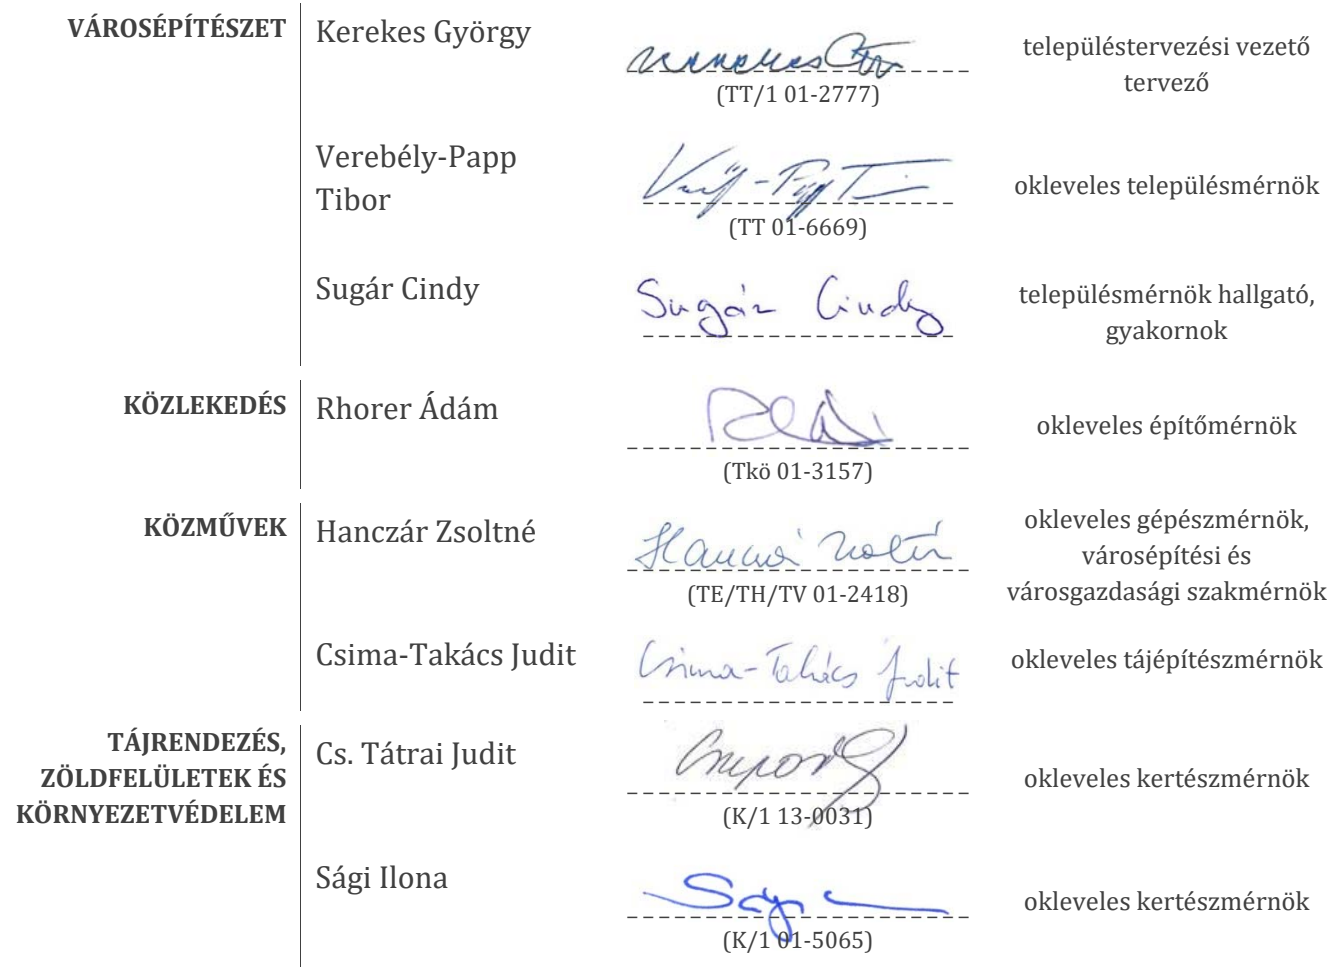 VÁROSÉPÍTÉSZET
Kerekes György
(TT/1 01-2777)
településtervezési vezető
tervező
Verebély-Papp
Tibor
(TT 01-6669)
okleveles településmérnök
Sugár Cindy
Sugár Cindy
településmérnök hallgató,
gyakornok
KÖZLEKEDÉS
Rhorer Ádám
(Tkö 01-3157)
okleveles építőmérnök
KÖZMŰVEK
Hanczár Zsoltné
(TE/TH/TV 01-2418)
okleveles gépészmérnök,
városépítési és
városgazdasági szakmérnök
Csima-Takács Judit
Csima-Takács Judit
okleveles tájépítészmérnök
TÁJRENDEZÉS,
ZÖLDFELÜLETEK ÉS
KÖRNYEZETVÉDELEM
Cs. Tátrai Judit
(K/1 13-0031)
okleveles kertészmérnök
Sági Ilona
(K/1 01-5065)
okleveles kertészmérnök